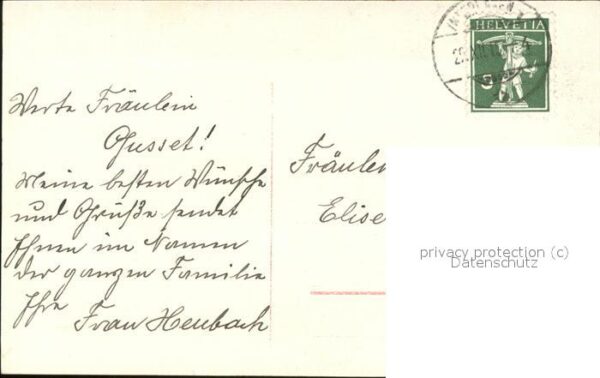 Werte Fräulein
Gusset!
Meine besten Wünsche
und Grüße sendet
Ihnen im Namen
der ganzen Familie
Ihre
Frau Heubach
HELVETIA
Fräulein
Elise
privacy protection (c)
Datenschutz